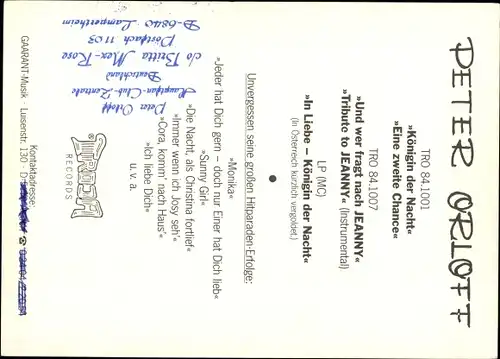 PETER ORLOFF
TRO 84.1001
»Königin der Nacht«
»Eine zweite Chance«
TRO 84.1007
»Und wer fragt nach JEANNY«
»Tribute to JEANNY« (Instrumental)
LP (MC)
»In Liebe – Königin der Nacht«
(In Österreich kürzlich vergoldet.)
Unvergessen seine großen Hitparaden-Erfolge:
»Monika«
»Jeder hat Dich gern – doch nur Einer hat Dich lieb«
»Sunny Girl«
»Die Nacht, als Christina fortlief«
»Immer wenn ich Josy seh'«
»Cora, komm' nach Haus'«
»Ich liebe Dich«
u. v. a.
TROCH
RECORDS
Peter Orloff
Hauptfan-Club-Zentrale
Deutschland
c/o Britta Mex-Rose
Postfach 1103
D-6840 Lampertheim
Kontaktadresse:
GAARANT-Musik